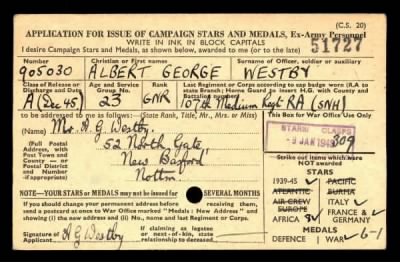 (C.S. 20)
APPLICATION FOR ISSUE OF CAMPAIGN STARS AND MEDALS, Ex-Army Personnel
WRITE IN INK IN BLOCK CAPITALS
51727
I desire Campaign Stars and Medals, as shown below, awarded to me (or to the late)
Number Christian or First names Surname of Officer, soldier or auxiliary
905030 ALBERT GEORGE WESTBY
Class of Release or Discharge and Date Age and Service Group No. Rank Last Regiment or Corps according to cap badge worn (RA to state Branch; Home Guard to insert H.G. with County and Battalion number)
A (Dec 45) 23 GNR 107th Medium Regt RA (SNH)
to be addressed to me as follows:— (State Rank, Title, Mr., Mrs. or Miss)
This Box for War Office Use Only
(Name) Mr. A. G. Westby.
(Full Postal Address, with Post Town and County — or Postal District and Number if appropriate)
52 North Gate,
New Basford
Nottm.
STARS CLASPS
9 JAN 1949
309
Strike out items which were NOT awarded
STARS
1939-45 PACIFIC
ATLANTIC BURMA
AIR CREW ITALY
EUROPE FRANCE & GERMANY
AFRICA 8
MEDALS
DEFENCE WAR 6-1
NOTE—YOUR STARS or MEDALS may not be issued for SEVERAL MONTHS
If you should change your permanent address before receiving them, send a postcard at once to War Office marked "Medals: New Address" and giving (i) the above serial number and (ii) No., name and last Regiment or Corps.
Signature of Applicant A G Westby
If claiming as legatee or next-of-kin, state relationship to deceased